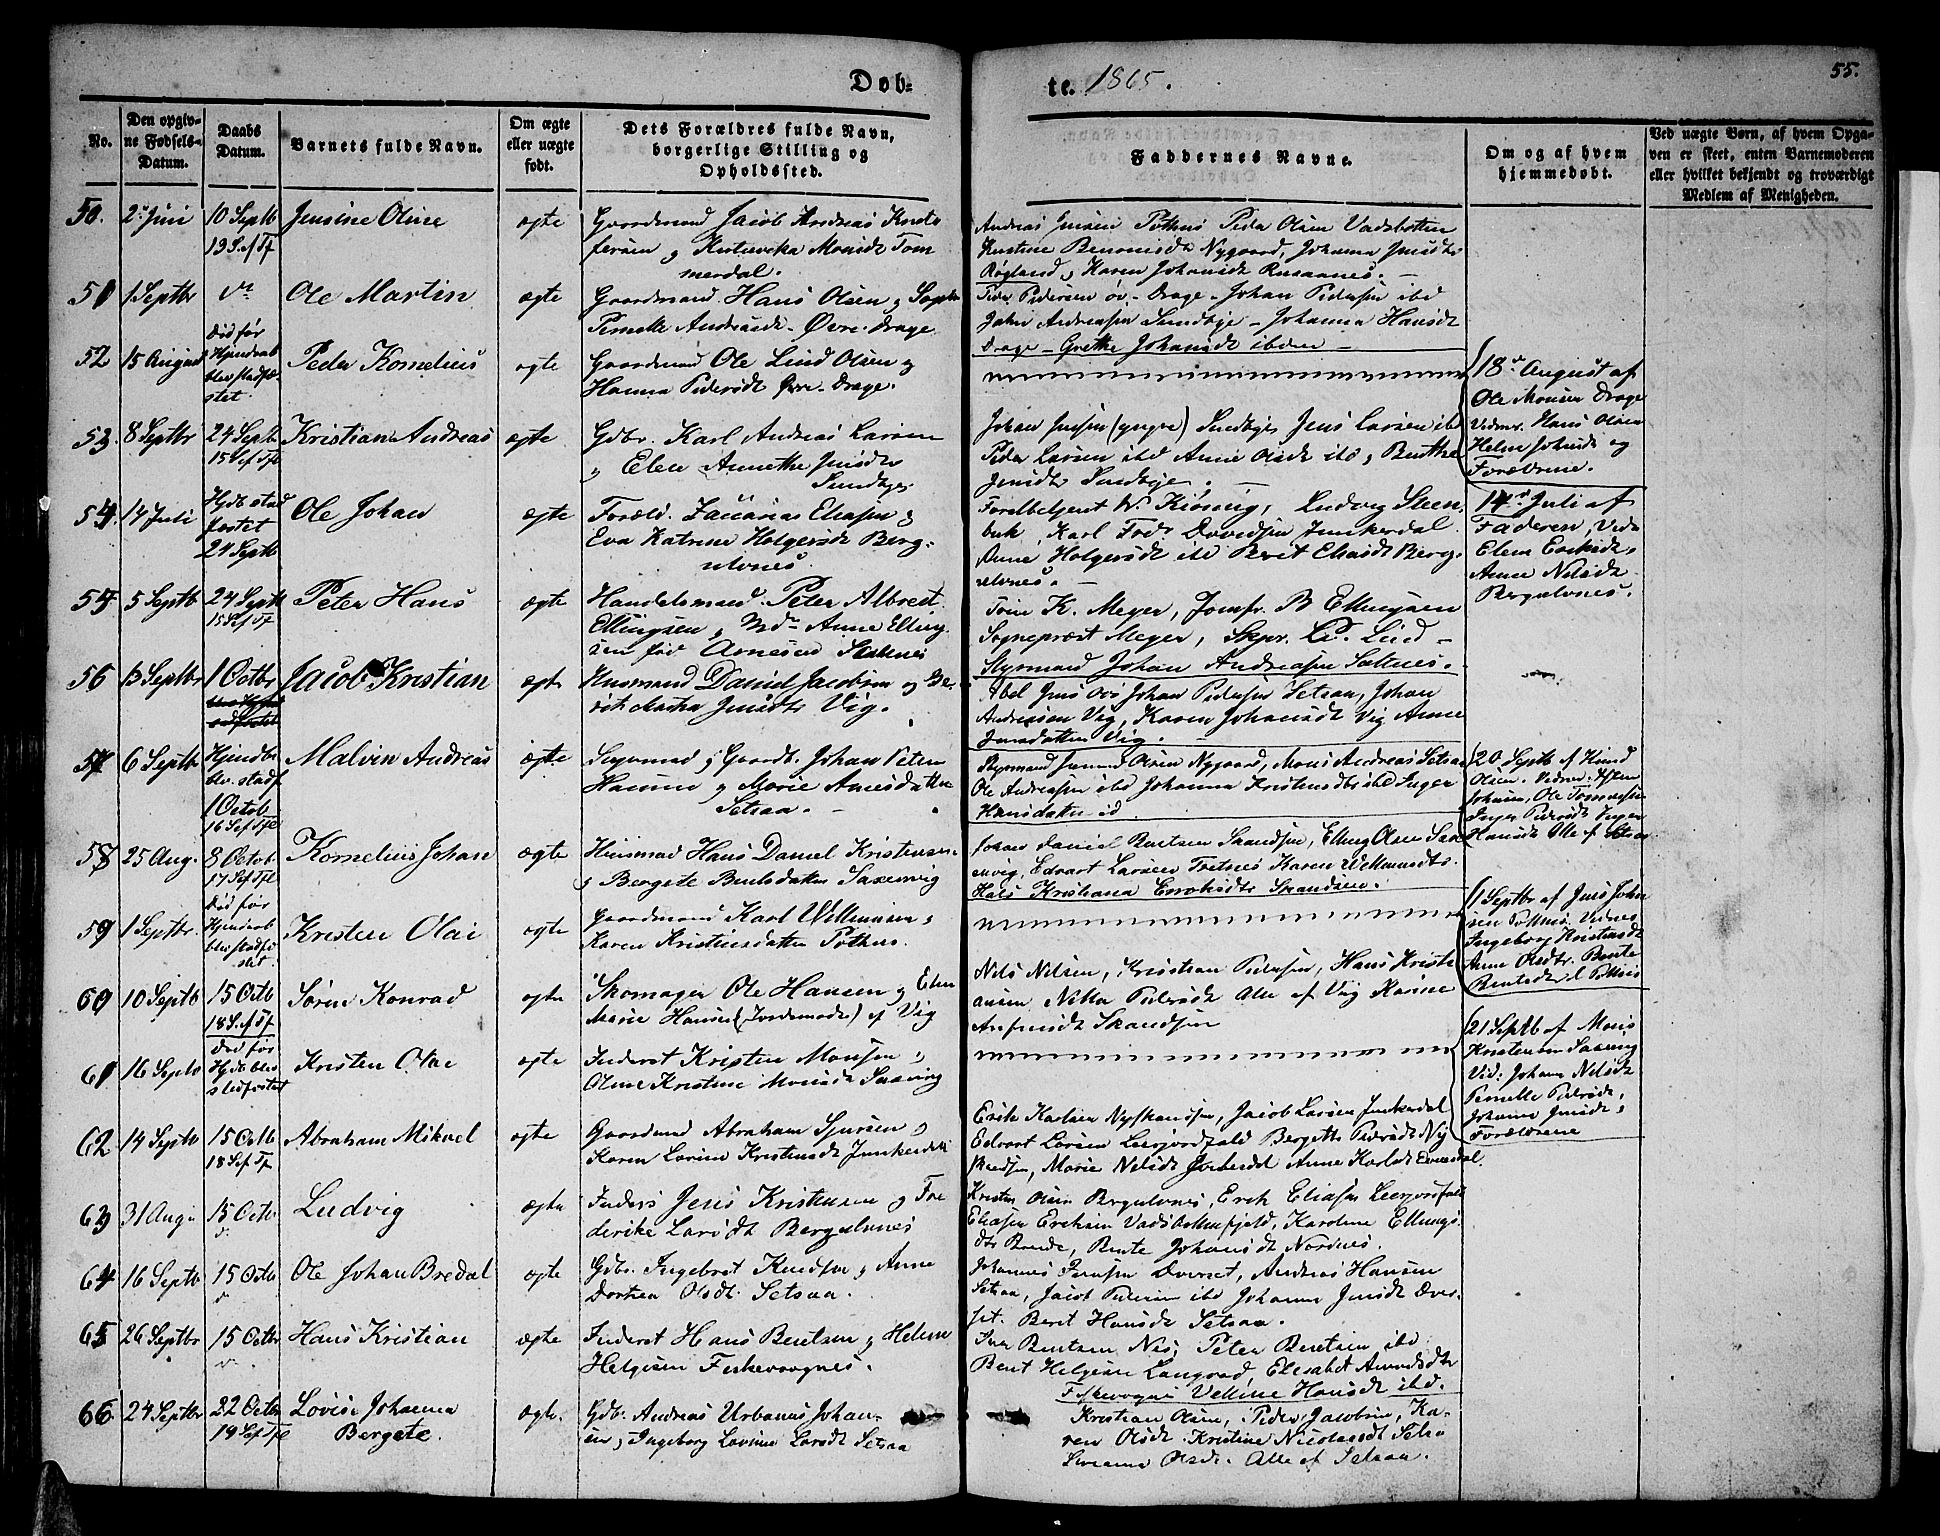 Døb-
te. 1865.
55.
No.
Den opgiv-
ne Fødsels-
Datum.
Daabs
Datum.
Barnets fulde Navn.
Om ægte
eller uægte
født.
Dets Forældres fulde Navn,
borgerlige Stilling og
Opholdssted.
Faddernes Navne.
Om og af hvem
hjemmedøbt.
Ved uægte Børn, af hvem Opga-
ven er skeet, enten Barnemoderen
eller hvilket bekjendt og troværdigt
Medlem af Menigheden.
50. 2 Juni 10 Septb Jensine Oline ægte Gaardmand Jacob Andreas Kristo
fersen
Monsdt Tom
merdal.
Andreas Jensen Pothus Peder Olsen Vadsbotten
Kirstine Benonisdt Nygaard, Johanna Jensdtr
Røgland, Karen Johansdt Rusaanes.
51 1 Septbr Ole Martin ægte Gaardmand Hans Olsen
Pernille Andreasdt Øvre Drage
Peder Pedersen øv. Drage - Johan Pedersen ibd
John Andreasen Sundbye - Johanna Hansdt
Drage - Grethe Johansdt ibden
52 15 August
død før
Hjemdaab
blev stadfæ-
stet
Peder Kornelius ægte Gaardmand Ole Lind Olsen og
Hanna Pedersdt Øvre Drage.
18 August af
Ole Monsen Drage
Vidner. Hans Olsen
Helene Johansdt og
Forældrene.
53. 8 Septbr 24 Septb
15 S ef Tf
Kristian Andreas ægte Gdbr. Karl Andreas Larsen
Elen Annethe Jensdtr
Sundbye
Johan Jensen (yngre) Sundbye Jens Larsen ibd
Peder Larsen ibd Anne Olsdt ibd, Benthe
Jensdtr Sundbye.
54. 14 Juli Hjdb stad
fæstet
24 Septb
Ole Johan ægte Foræld. Zakarias Eliasen
Eva Katrine Holgersdt Berg-
ulvnes
Ludvig Steen
buk, Karl Fredr Davidsen Junkerdal
Anne Holgersdt ibd Berit Eliasdt Berg-
ulvnes.
14 Juli af
Faderen, Vidn
Elen Eriksdt,
Anne Nilsdt
Bergulvnes.
5 Septb 24 Septb
15 S ef Tf
Peter Hans ægte Handelsmand Peter Albrecht
Ellingsen Anne Elling
sen
Meyer, Jomfr. B Ellingsen
Sogneprest Meyer, Lind
Styrmand Johan Andreasen Saltnes.
56 13 Septbr 1 Octbr Jacob Kristian ægte Husmand Daniel Jacobsen og Be-
rit Martha Jensdtr Vig.
Johan Pedersen Setsaa, Johan
Andreasen Vig, Karen Johansdt Vig Anne
Jensdatter Vig.
57 6 Septbr Hjemdb
blev stadf
1 Octob
16 S ef Tf
Malvin Andreas ægte Johan Peter
Hansen og Marie Arnesdatter
Setsaa.
Styrmand Olsen Nygaard, Mons Andreas Setsaa
Ole Andreasen ibd Johanna Kristensdtr ibd Inger
Hansdatter id
20 Septb af Knud
Olsen. Vidner.
Johansen, Ole Tomasen
Inger Pedersdt Inger
Hansdt Alle af Setsaa
58 25 Aug. 8 Octob
17 S ef Tf
Kornelius Johan ægte Husmand Hans Daniel Kristensen
Bergete Bentsdatter Saxenvig
Johan Daniel Bentsen Skandsen, Elling Olsen Sax
envig, Edvart Larsen Tretnes Karen Willumsdtr
Kristiana Skandsen.
59 1 Septbr. Død før
Hjemdaab
blev stadfæ-
stet.
Kristen Olai ægte Gaardmand Karl Willumsen
Karen Kristensdatter Pothus.
1 Septbr af Jens Johan
sen Pothus. Vidner
Ingeborg Kristensdt
Anne Olsdtr. Bente
Bentsdt Pothus
60 10 Septb 15 Octb
18 S. ef Tf
Søren Konrad ægte Skomager Ole Hansen og Elen
Marie Hansen (Jordemoder) af Vig
Nils Nilsen, Kristian Pedersen, Hans Kristi
ansen Nikka Pedersdt Alle af Vig Karine
Skandsen
61 16 Septb Død før
Hjdb blev
stadfæstet
Kristen Olai ægte Inderst Kristen Monsen
Oline Kristine Monsdt Saxenvig
21 Septb af Mons
Kristensen Saxenvig
Vid: Johan Nilsdt
Pernille Pedersdt,
Johanna Jensdt,
Forældrene
62 14 Septb 15 Octb
18 S ef Tf
Abraham Mikael ægte Gaardmand Abraham Sjursen
Karen Lovise Kristensdt Junkerdal
Erik Karlsen Nyskandsen, Jacob Larsen Junkerdal
Edvart Larsen Leerjordfald Bergette Pedersdt Ny
skandsen, Marie Nilsdt Anne Karlsdt Evenesdal.
63 31 Aug 15 Octb Ludvig ægte Inders Jens Kristensen og Fre
derike Larsdt Bergulvnes
Kristen Olsen Bergulvnes, Erik Eliasen Leerjordfald
Eliasen Eriksen Vadsbottenfjeld, Karoline Ellings
dtr Brende, Bente Johansdt Nordnes.
64 16 Septb 15 Octb Ole Johan Bredal ægte Gdbr. Ingebret Knudsen, Anne
Dortea Olsdt. Setsaa.
Johannes Jensen Dverset, Andreas Hansen
Setsaa, Jacob Pedersen ibd Johanna Jensdt Dver-
set. Beret Hansdt Setsaa.
65 26 Septbr 15 Octbr Hans Kristian ægte Inderst Hans Bentsen og Helene
Helgesen Fiskevaagnes.
Iver Bentsen Nes, Peter Bentsen ibd
Bent Helgesen Langvad, Elisabet Amundsdtr
Fiskevaagnes Velline Hansdt ibd.
66 24 Septbr 22 Octbr
19 S ef Tf
Lovise Johanna
Bergete.
ægte. Gdb. Andreas Urbanus Johan-
sen, Ingeborg Lovise Larsdt Setsaa
Kristian Olsen, Peder Jacobsen, Ka-
ren Olsdt. Kristine Nicolaisdt Setsa
Olsdt. Alle af Setsaa.